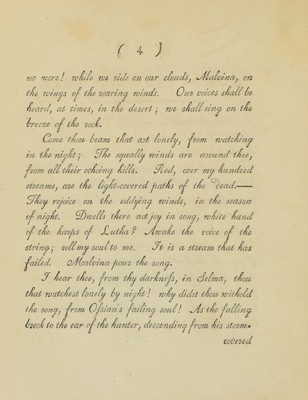 ( 4 )
no more! while we ride on our clouds, Malvina, on
the wings of the roaring winds. Our voices shall be
heard, at times, in the desert; we shall sing on the
breeze of the rock.
Come thou beam that art lonely, from watching
in the night; The squally winds are around thee,
from all their echoing hills. Red, over my hundred
streams, are the light-covered paths of the dead.—
They rejoice on the eddying winds, in the season
of night. Dwells there not joy in song, white hand
of the harps of Lutha? Awake the voice of the
string; roll my soul to me. It is a stream that has
failed. Malvina pour the song.
I hear thee, from thy darkneſs, in Selma, thou
that watchest lonely by night! why didst thou withold
the song, from Oſsian's failing soul! As the falling
brook to the ear of the hunter, descending from his storm-
covered